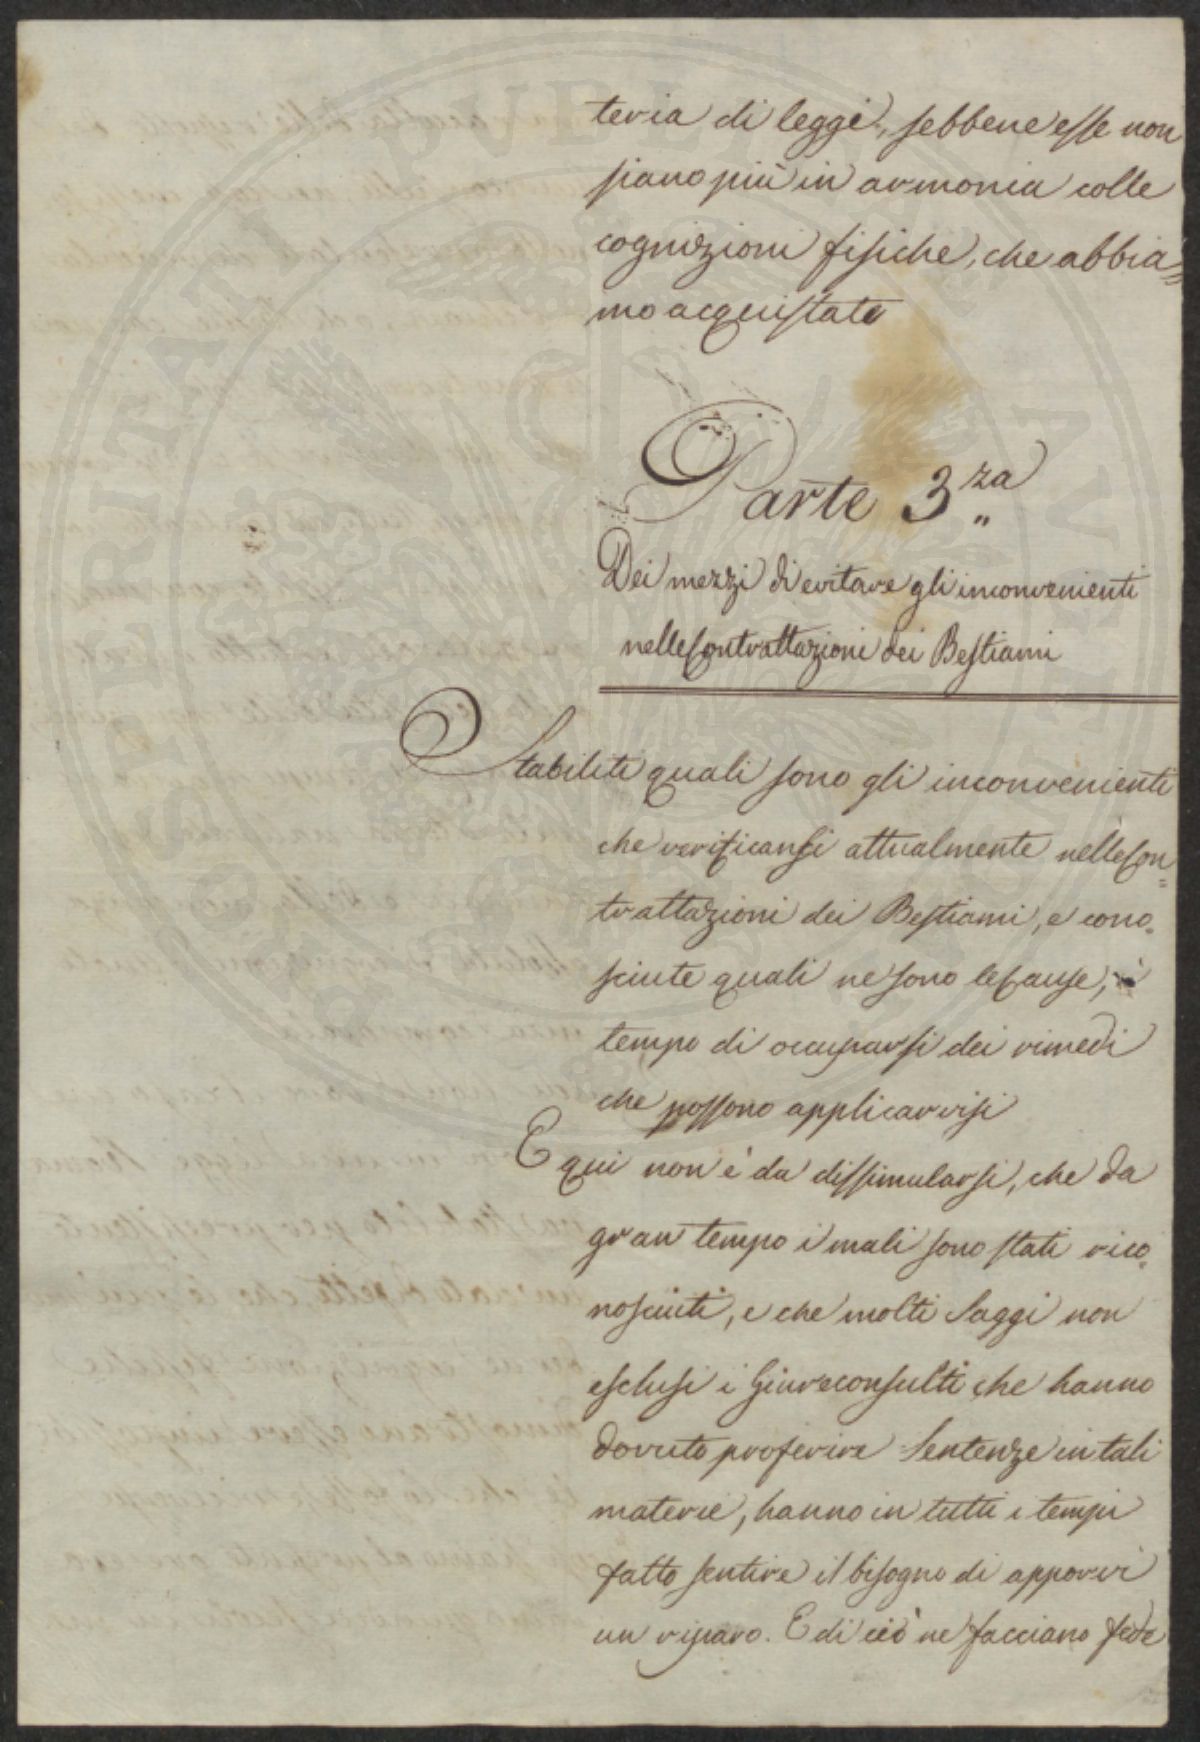 teria di leggi, sebbene esse non
siano più in armonia colle
cognizioni fisiche, che abbia=
mo acquistate
Parte 3.za
Dei mezzi di evitare gl'inconvenienti
nelle Contrattazioni dei Bestiami
Stabiliti quali sono gli inconvenienti
che verificansi attualmente nelle Con=
trattazioni dei Bestiami, e cono=
sciute quali ne sono le Cause, è
tempo di occuparsi dei rimedi
che possono applicarvisi
E qui non è da dissimularsi, che da
gran tempo i mali sono stati rico=
nosciuti, e che molti Saggi non
esclusi i Giureconsulti che hanno
dovuto proferire Sentenze in tali
materie, hanno in tutti i tempi
fatto sentire il bisogno di apporvi
un riparo. E di ciò ne facciano fede